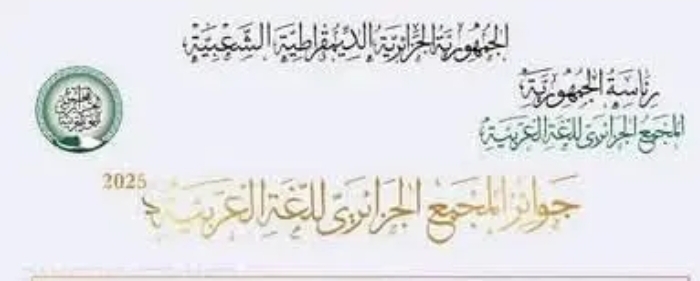 الجمهورية الجزائرية الديمقراطية الشعبية
رئاسة الجمهورية
المجمع الجزائري للغة العربية
جوائز المجمع الجزائري للغة العربية
2025